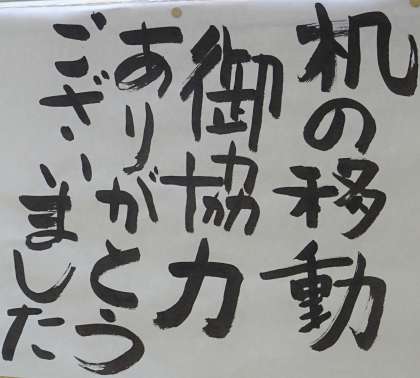 机の移動
御協力
ありがとう
ございました